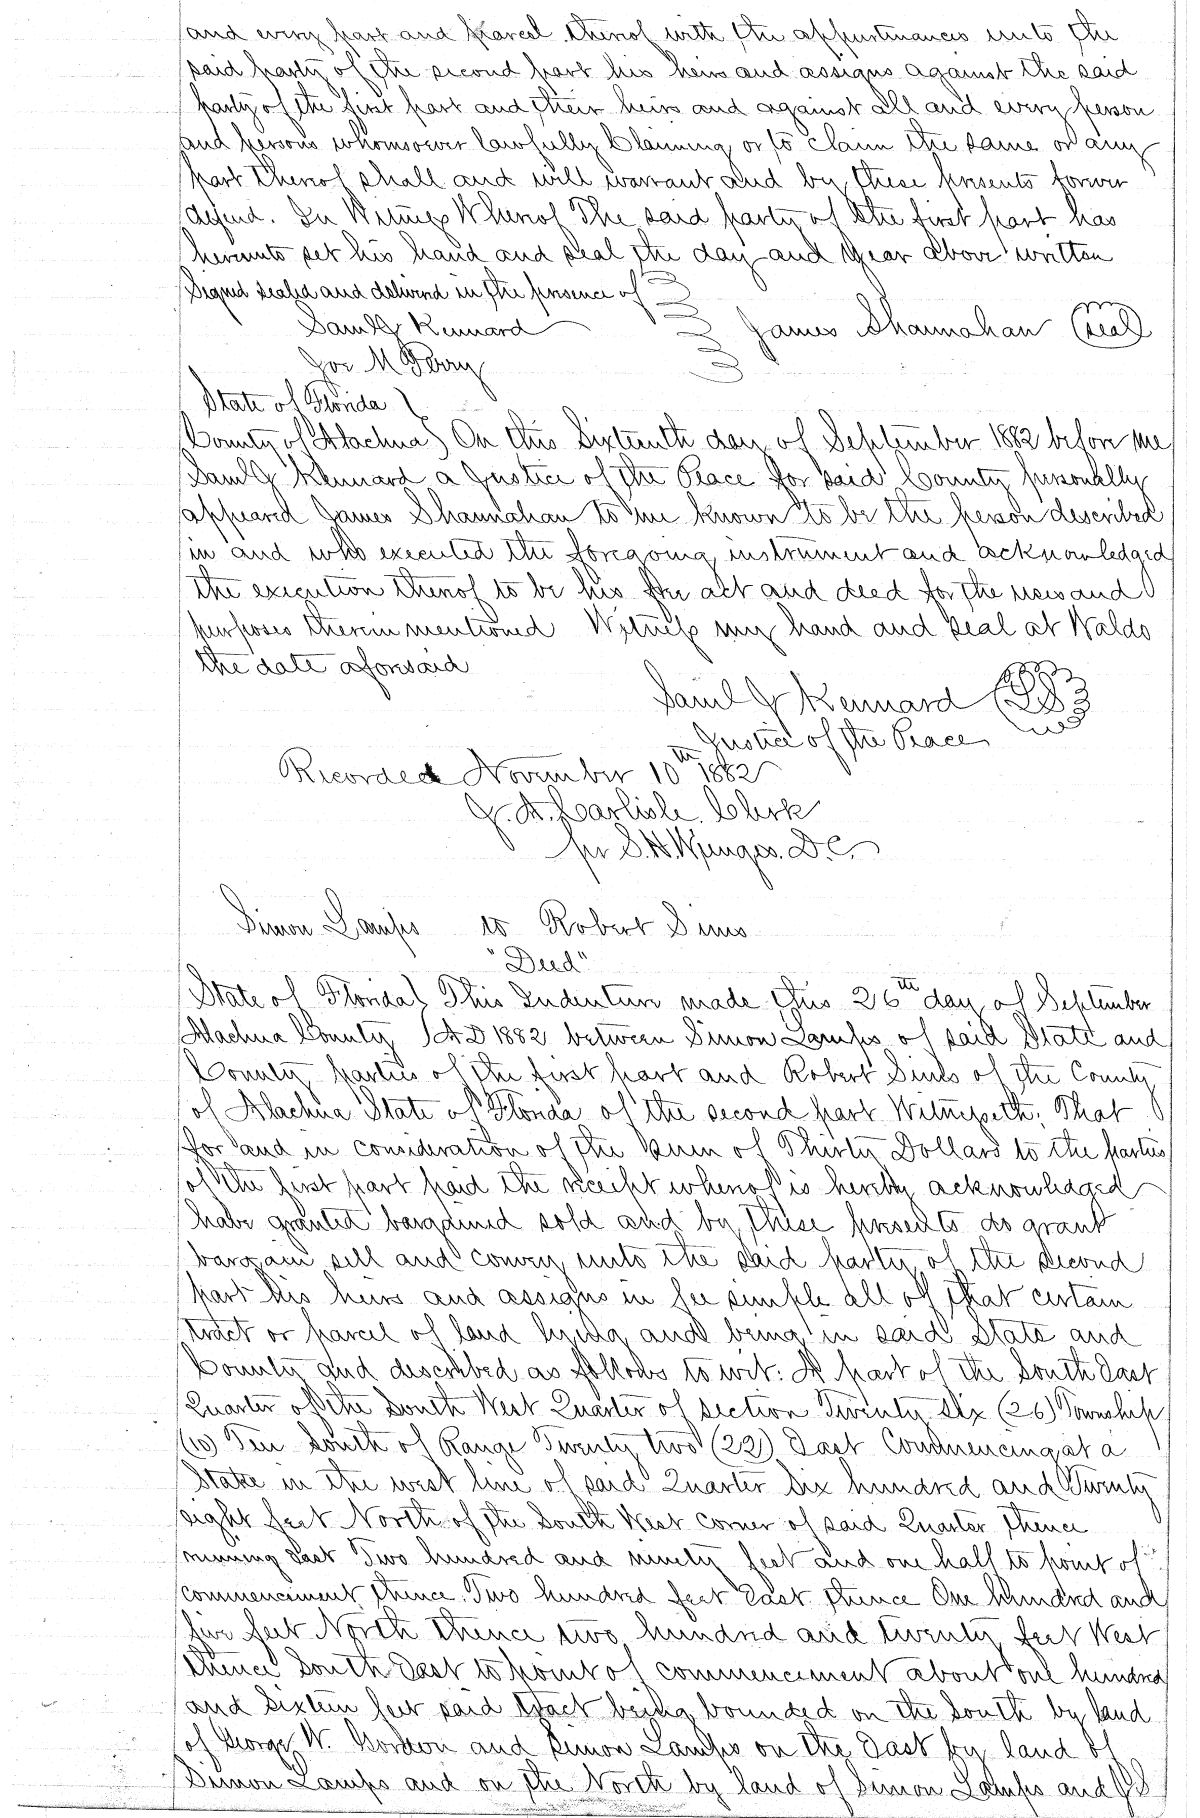 and every part and parcel thereof with the appurtenances unto the
said party of the second part his heirs and assigns against the said
party of the first part and their heirs and against all and every person
and persons whomsoever lawfully Claiming or to claim the same or any
part thereof shall and will warrant and by these presents forever
defend. In Witness Whereof The said party of the first part has
hereunto set his hand and seal the day and year above written
Signed sealed and delivered in the presence of
Saml J Kennard James Shannahan (seal)
Joe M Perry
State of Florida )
County of Alachua ) On this Sixteenth day of September 1882 before me
Saml J Kennard a Justice of the Peace for said County personally
appeared James Shannahan to me known to be the person described
in and who executed the foregoing instrument and acknowledged
the execution thereof to be his free act and deed for the uses and
purposes therein mentioned Witness my hand and seal at Waldo
the date aforesaid
Saml J Kennard
Justice of the Peace
Recorded November 10th 1882
J. A. Carlisle. Clerk
per S. H. D.C.
Simon Lamps to Robert Sims
"Deed"
State of Florida ) This Indenture made this 26th day of September
Alachua County ) A D 1882 between Simon Lamps of said State and
County parties of the first part and Robert Sims of the County
of Alachua State of Florida of the second part Witnesseth; That
for and in consideration of the sum of Thirty Dollars to the parties
of the first part paid the receipt whereof is hereby acknowledged
have granted bargained sold and by these presents do grant
bargain sell and convey unto the said party of the second
part his heirs and assigns in fee simple all of that certain
tract or parcel of land lying and being in said State and
County and described as follows to wit: A part of the South East
Quarter of the South West Quarter of section Twenty Six (26) Township
(10) Ten South of Range Twenty two (22) East Commencing at a
Stake in the west line of said Quarter Six hundred and Twenty
eight feet North of the South West corner of said Quarter thence
running East Two hundred and ninety feet and one half to point of
commencement thence Two hundred feet East thence One hundred and
five feet North thence two hundred and twenty feet West
thence South East to point of commencement about one hundred
and sixteen feet said tract being bounded on the South by land
of George W. Gordon and Simon Lamps on the East by land of
Simon Lamps and on the North by land of Simon Lamps and